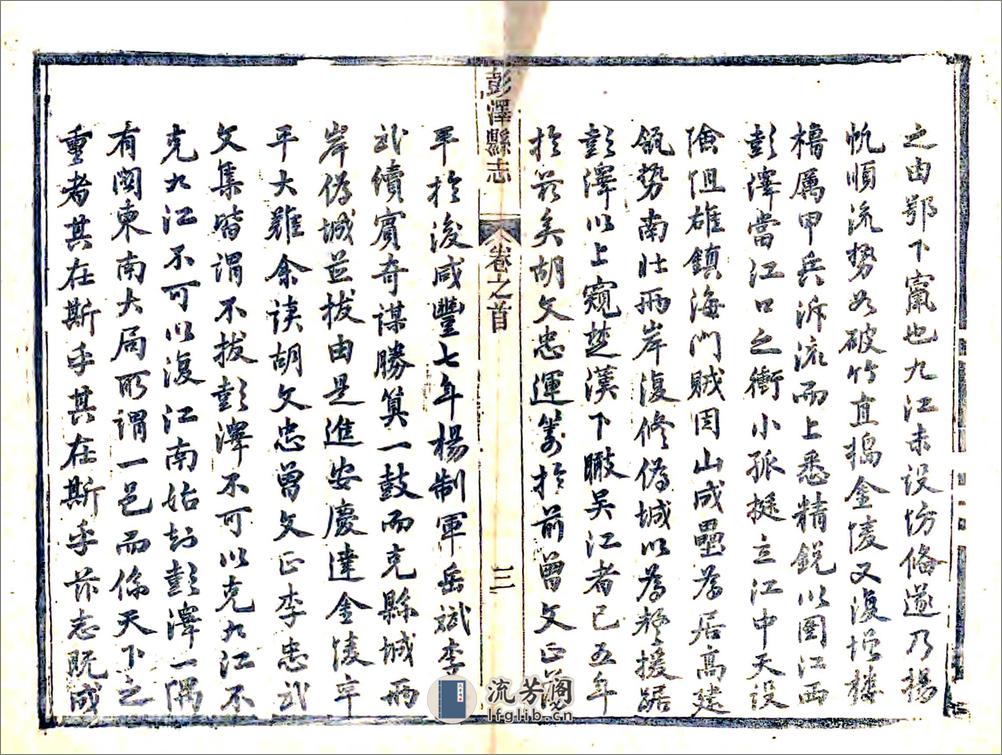 之由鄂下竄也九江未設防備遂乃揚
帆順流勢如破竹直搗金陵又復增樓
櫓厲甲兵泝流而上悉精銳以圖江西
彭澤當江口之衝小孤挺立江中天設
險阻雄鎮海門賊因山成壘為居高建
瓴勢南北兩岸復修偽城以為犄援踞
彭澤以上窺楚漢下瞰吳江者已五年
於茲矣胡文忠運籌於前曾文正蕩
彭澤縣志
卷之首
三
平於後咸豐七年楊制軍岳斌李
武續賓奇謀勝算一鼓而克縣城兩
岸偽城並拔由是進安慶達金陵卒
平大難余讀胡文忠曾文正李忠武
文集皆謂不拔彭澤不可以克九江不
克九江不可以復江南始知彭澤一隅
有關東南大局所謂一邑而係天下之
重者其在斯乎其在斯乎茲志既成
流芳閣
lfglib.cn